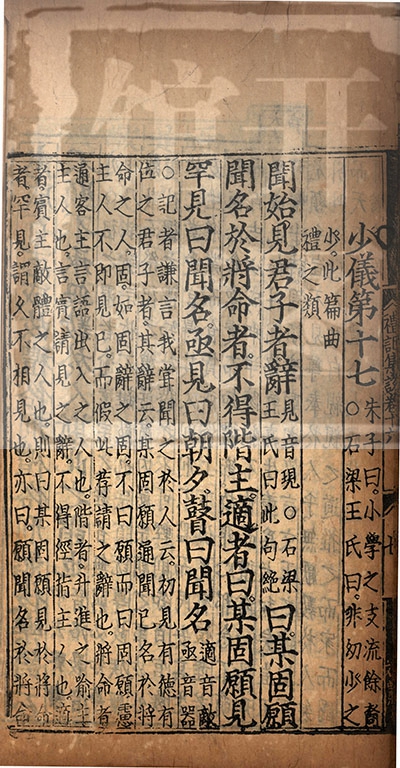 禮記集說卷六
少儀第十七 朱子曰。小學之支流餘裔
○石梁王氏曰。非幼少之
少。此篇曲
禮之類
聞始見君子者辭 見音現○石梁
王氏曰此句絶 曰。某固願
聞名於將命者。不得階主。適者曰。某固願見
罕見曰聞名。亟見曰朝夕瞽曰聞名 適音敵
亟音器
○記者謙言我嘗聞之於人云。初見有德有
位之君子者。其辭云。某固願通聞已名於將
命之人。固。如固辭之固。不曰願而曰固願。慮
主人不即見已。而假此荐請之辭也。將命者
通客主言語出入之人也。階者。升進之喻。主
主人也。言賓請見之辭。不得徑指主人也。適
者賓主敵體之人也。則曰某固願見於將命
者罕見。謂久不相見也。亦曰願聞名於將命